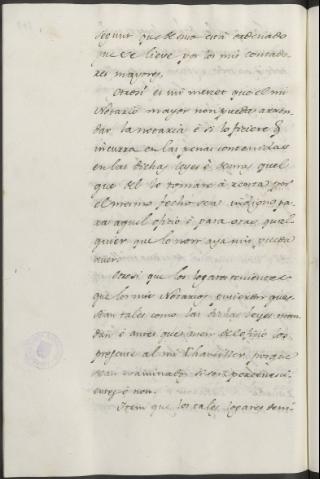 segunt que de suso está ordenado
que se lieve por los mis contado-
res mayores.
Otrosí es mi merced que el mi
Notario mayor non pueda arren-
dar la notaria é si lo ficiere q
incurra en las penas contenidas
en las dichas leyes é demas quel
que del lo tomare á renta por
el mesmo fecho sea indigno pa-
ra aquel oficio é para otro qual-
quier que lo non aya nin pueda
aver.
Otrosi que los logares tenientes
que los mis Notarios ovieren que
sean tales como las dichas leyes man-
dan é antes que usen del oficio los
presente al mi Chanciller porque
sean examinados si son pertenesci-
entes ó non.
Item que los tales logares teni-